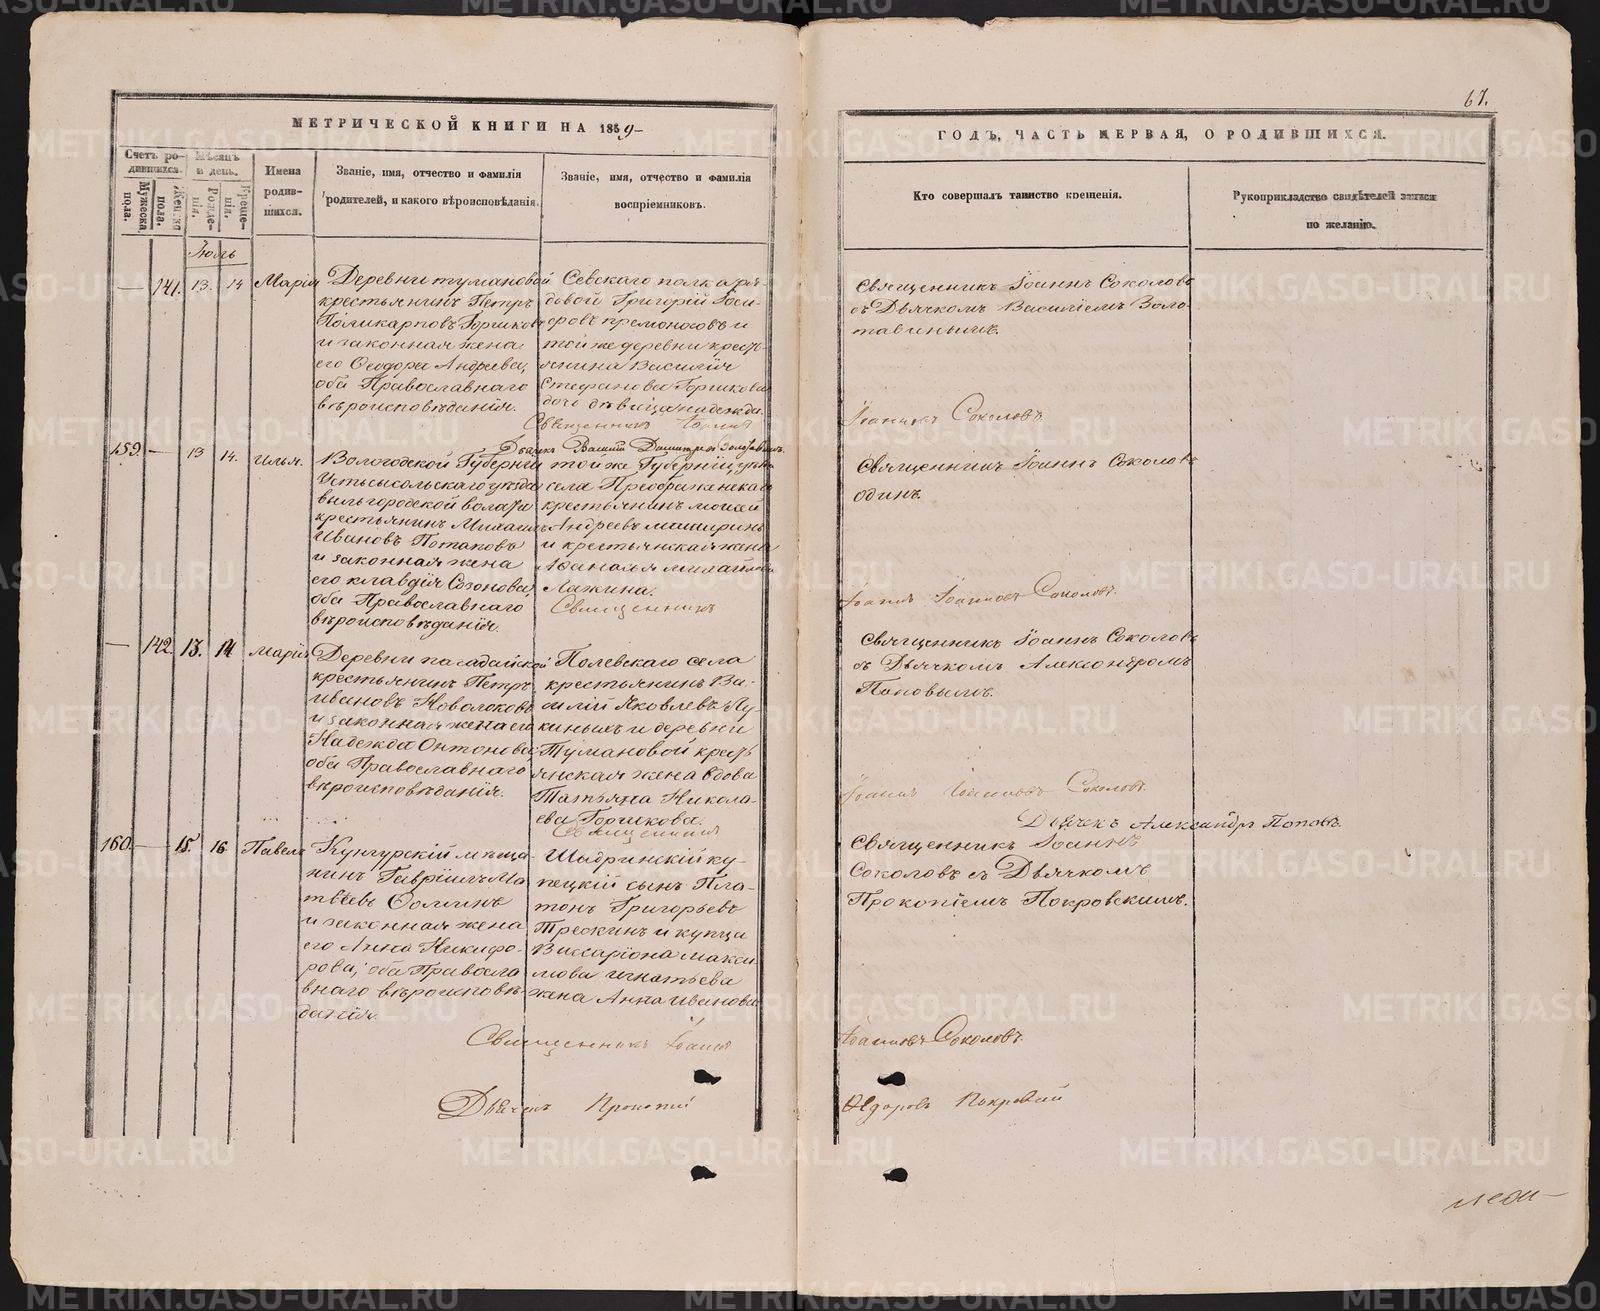 67.
МЕТРИЧЕСКОЙ КНИГИ НА 1859
ГОДЪ, ЧАСТЬ ПЕРВАЯ, О РОДИВШИХСЯ.
Счетъ ро-
дившихся.
Мужеска
пола.
Женска
пола.
Мѣсяцъ
и день.
Рожде-
нія.
Креще-
нія.
Имена
родив-
шихся.
Званіе, имя, отчество и фамилія
родителей, и какого вѣроисповѣданія.
Званіе, имя, отчество и фамилія
воспріемниковъ.
Кто совершалъ таинство крещенія.
Рукоприкладство свидѣтелей записи
по желанію.
Іюль
— 141. 13. 14 Марія
Деревни тумановой
крестьянинъ Петръ
Поликарповъ Горшковъ
и законная жена
его Ѳеодора Андреева,
оба Православнаго
вѣроисповѣданія.
Севскаго полка ря-
довой Григорій
и
тойже деревни кресть-
янина Василія
Стефанова Горшкова
дочь дѣвица надежда.
Священникъ Іоаннъ
Священникъ Іоаннъ Соколовъ
съ Дьячкомъ Василіемъ Золо-
тавинымъ.
Соколовъ
159. — 13 14. Илья.
Вологодской Губерніи
Устьсысольскаго уѣзда
вильгородской волости
крестьянинъ Михаилъ
Ивановъ Потаповъ
и законная жена
его клавдія Созонова,
оба Православнаго
вѣроисповѣданія.
Дьячекъ Василій Золотавинъ
тойже Губерніи, уѣзда
села Преображенскаго
крестьянинъ моисей
Андреевъ
и крестьянская жена
Лажина.
Священникъ
Священникъ Іоаннъ Соколовъ
одинъ.
Іоаннъ Іоанновъ Соколовъ.
— 142. 13. 14 марія
Деревни
крестьянинъ Петръ
ивановъ Новолоковъ
и законная жена его
Надежда Онтонова,
оба Православнаго
вѣроисповѣданія.
Полевскаго села
крестьянинъ Ва-
силій Яковлевъ
и деревни
Тумановой кресть-
янская жена вдова
Татьяна Никола-
ева Горшкова.
Священникъ
Священникъ Іоаннъ Соколовъ
съ Дьячкомъ Александромъ
Поповымъ.
Іоаннъ Іоанновъ Соколовъ.
Дьячекъ Александръ Поповъ.
160. — 15. 16 Павелъ
Кунгурскій мѣща-
нинъ Гавріилъ Ма-
твѣевъ Ѳоминъ
и законная жена
его Анна Никифо-
рова; оба Правосла
внаго вѣроисповѣ-
данія.
Шадринскій ку-
пецкій сынъ Пла-
тонъ Григорьевъ
Трескинъ и купца
Виссаріона макси-
мова игнатьева
жена Анна иванова
Священникъ Іоаннъ
Дьячекъ Прокопій
Священникъ Іоаннъ
Соколовъ съ Дьячкомъ
Прокопіемъ Покровскимъ.
Іоанновъ Соколовъ.
Ѳедоровъ Покровскій
METRIKI.GASO-URAL.RU